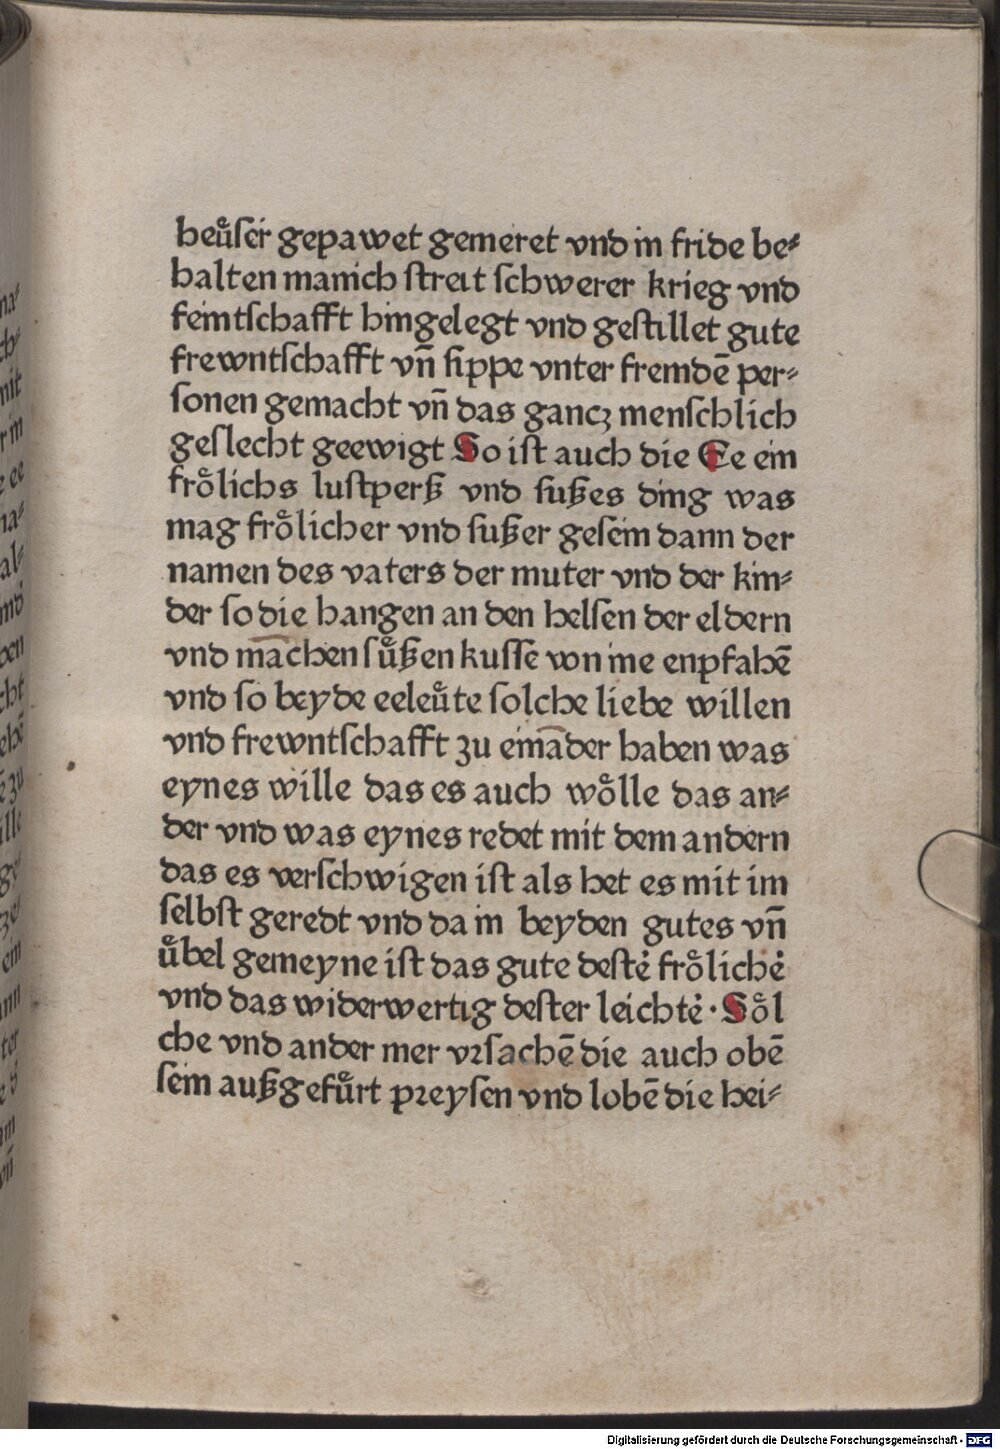 heuͤſer gepawet gemeret vnd in fride be⸗
halten manich ſtreit ſchwerer krieg vnd
feintſchafft hingelegt vnd geſtillet gute
frewntſchafft vn̄ ſippe vnter fremdē per⸗
ſonen gemacht vn̄ das gancz menſchlich
geſlecht geewigt So iſt auch die Ee ein
froͤlichs luſtperß vnd ſußes ding was
mag froͤlicher vnd ſußer geſein dann der
namen des vaters der muter vnd der kin⸗
der ſo die hangen an den helſen der eldern
vnd māchen ſuͤßen kuſſe von ine enpfahē
vnd ſo beyde eeleuͤte ſolche liebe willen
vnd frewntſchafft zu eināder haben was
eynes wille das es auch woͤlle das an⸗
der vnd was eynes redet mit dem andern
das es verſchwigen iſt als het es mit im
ſelbſt geredt vnd da in beyden gutes vn̄
uͤbel gemeyne iſt das gute deſtė froͤlichė
vnd das widerwertig deſter leichtė · Soͤl
che vnd ander mer vꝛſachē die auch obē
ſein außgefuͤrt pꝛeyſen vnd lobē die hei⸗
Digitalisierung gefördert durch die Deutsche Forschungsgemeinschaft - DFG